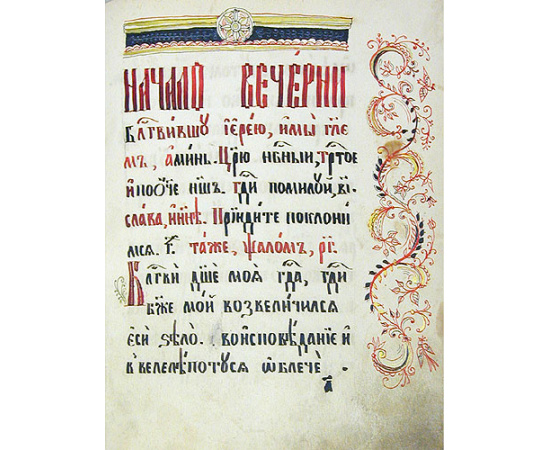 НАЧАЛО ВЕЧЕ́РНИ
Бл҃гви́вшу і҆ере́ю, и҆ мы̀ гл҃е
мъ, а҆ми́нь. Цр҃ю нб҃ный, трⷭ҇тое
и҆ по ѻ҆́ч҃е на́шъ. гдⷭ҇и поми́луй, в҃і
сла́ва, и҆ ны́нѣ. Прїиди́те поклони
мся. г҃. та́же, ѱало́мъ, р҃г.
Бл҃гви̂ дш҃е моя̀ гдⷭ҇а, гдⷭ҇и
бж҃е мо́й возвели́чился
є҆сѝ ѕѣлѡ̀. во и҆сповѣ́данїе и҆
в велелѣ́поту ся ѡ҆блече́
а҃